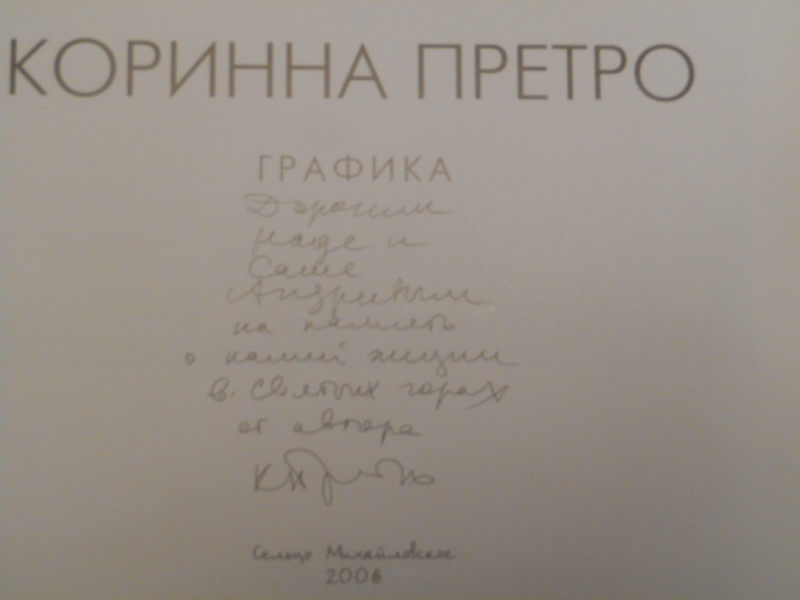 КОРИННА ПРЕТРО
ГРАФИКА
Дорогим
Наде и
Саше
Андреевым
на память
о нашей жизни
в Святых горах
от автора
Сельцо Михайловское
2006